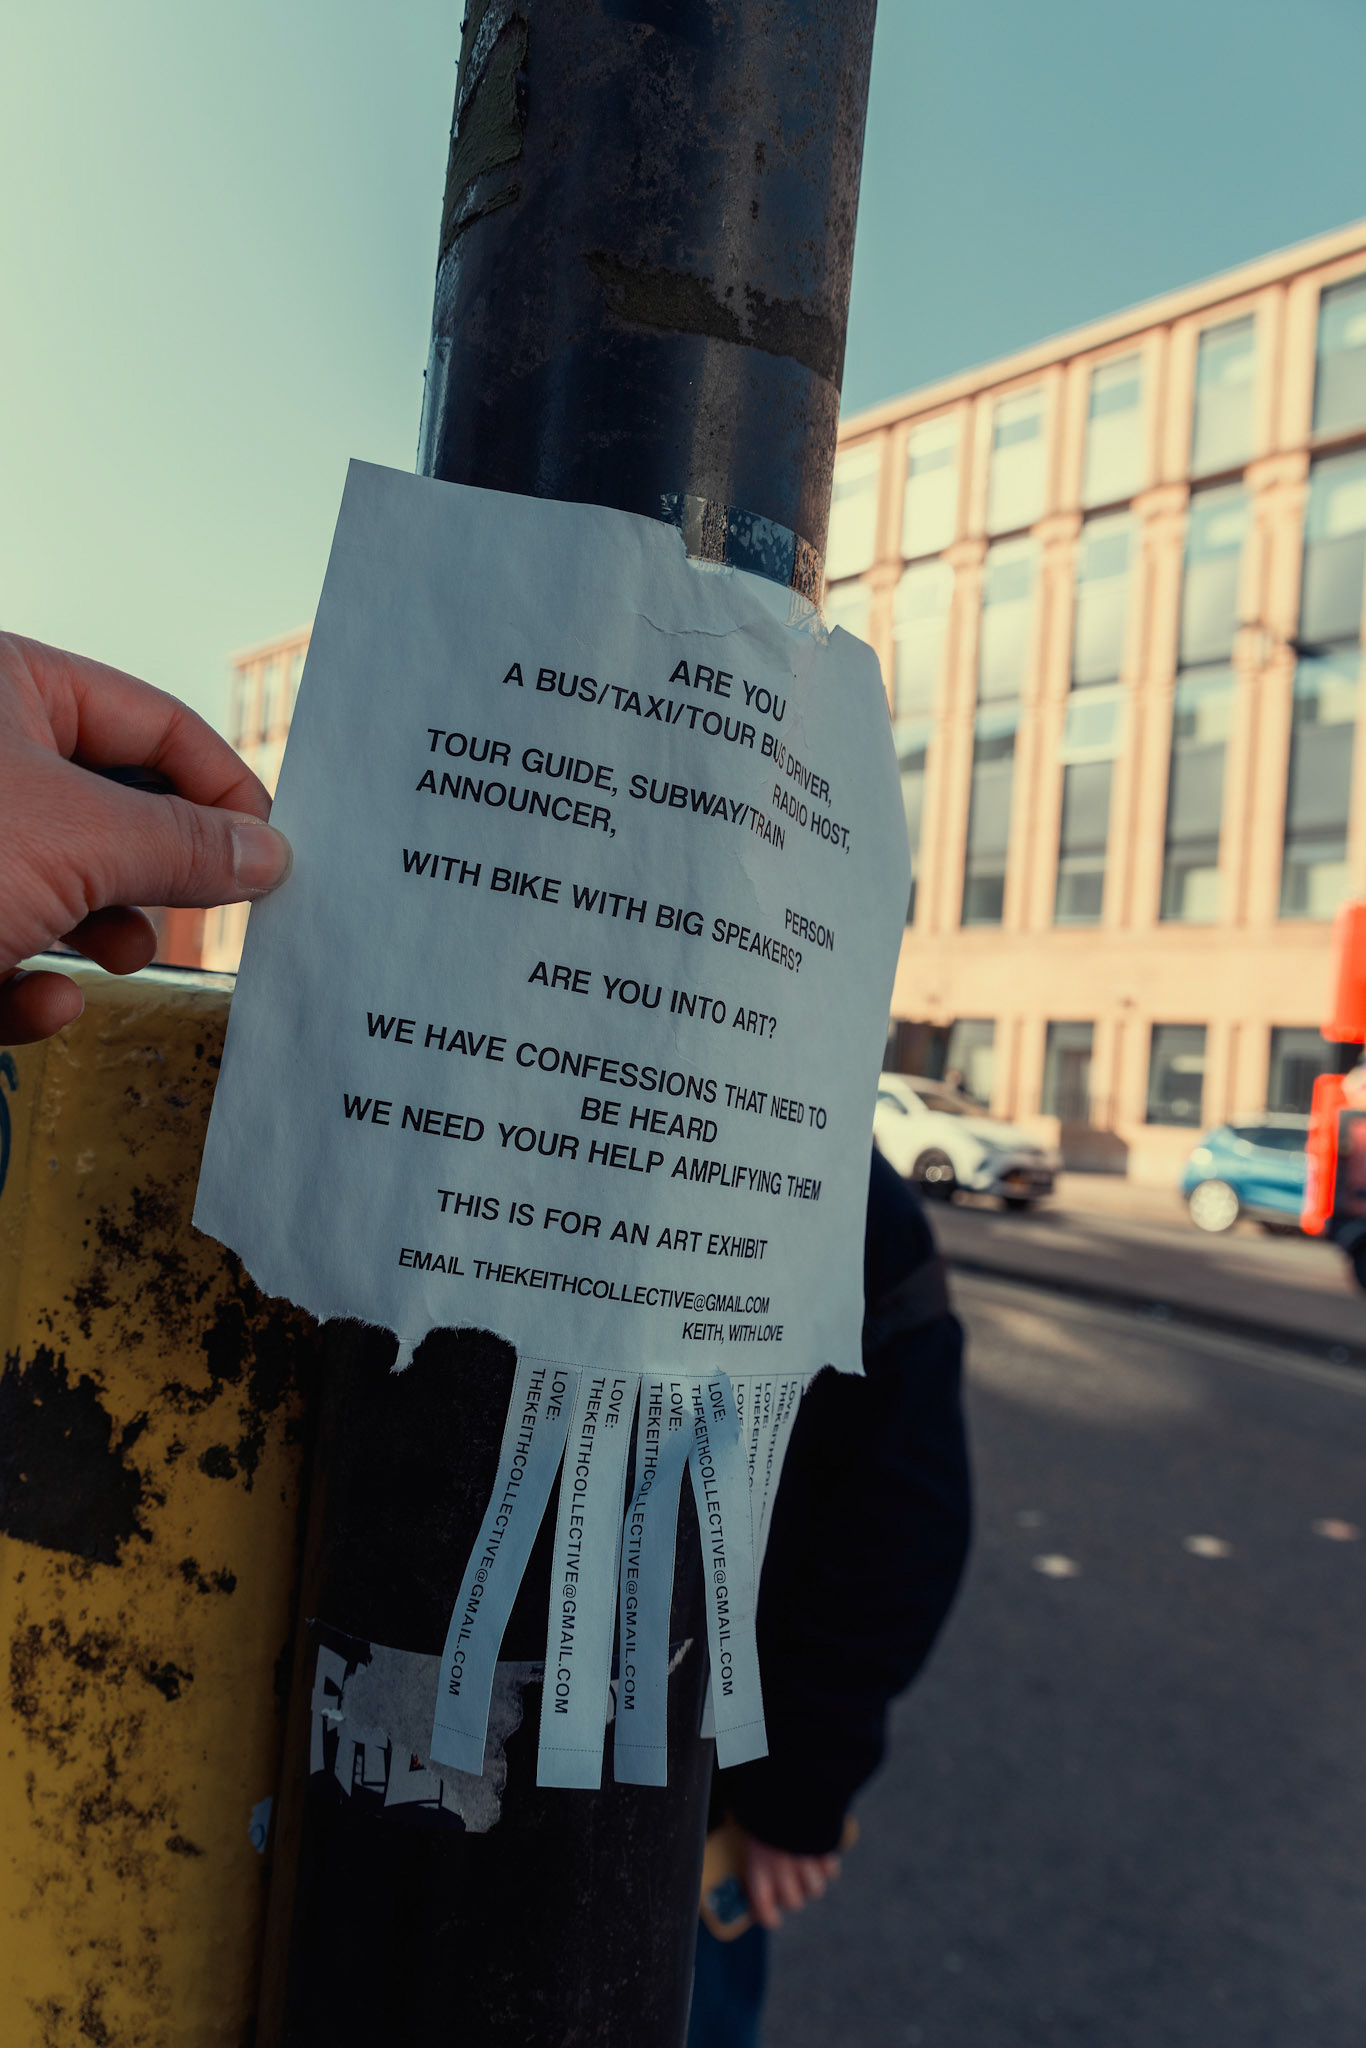 ARE YOU
A BUS/TAXI/TOUR BUS DRIVER,
RADIO HOST,
TOUR GUIDE, SUBWAY/TRAIN
ANNOUNCER,
PERSON
WITH BIKE WITH BIG SPEAKERS?
ARE YOU INTO ART?
WE HAVE CONFESSIONS THAT NEED TO
BE HEARD
WE NEED YOUR HELP AMPLIFYING THEM
THIS IS FOR AN ART EXHIBIT
EMAIL THEKEITHCOLLECTIVE@GMAIL.COM
KEITH, WITH LOVE
LOVE:
THEKEITHCOLLECTIVE@GMAIL.COM
LOVE:
THEKEITHCOLLECTIVE@GMAIL.COM
LOVE:
THEKEITHCOLLECTIVE@GMAIL.COM
LOVE:
THEKEITHCOLLECTIVE@GMAIL.COM
LOVE:
LOVE:
LOVE: